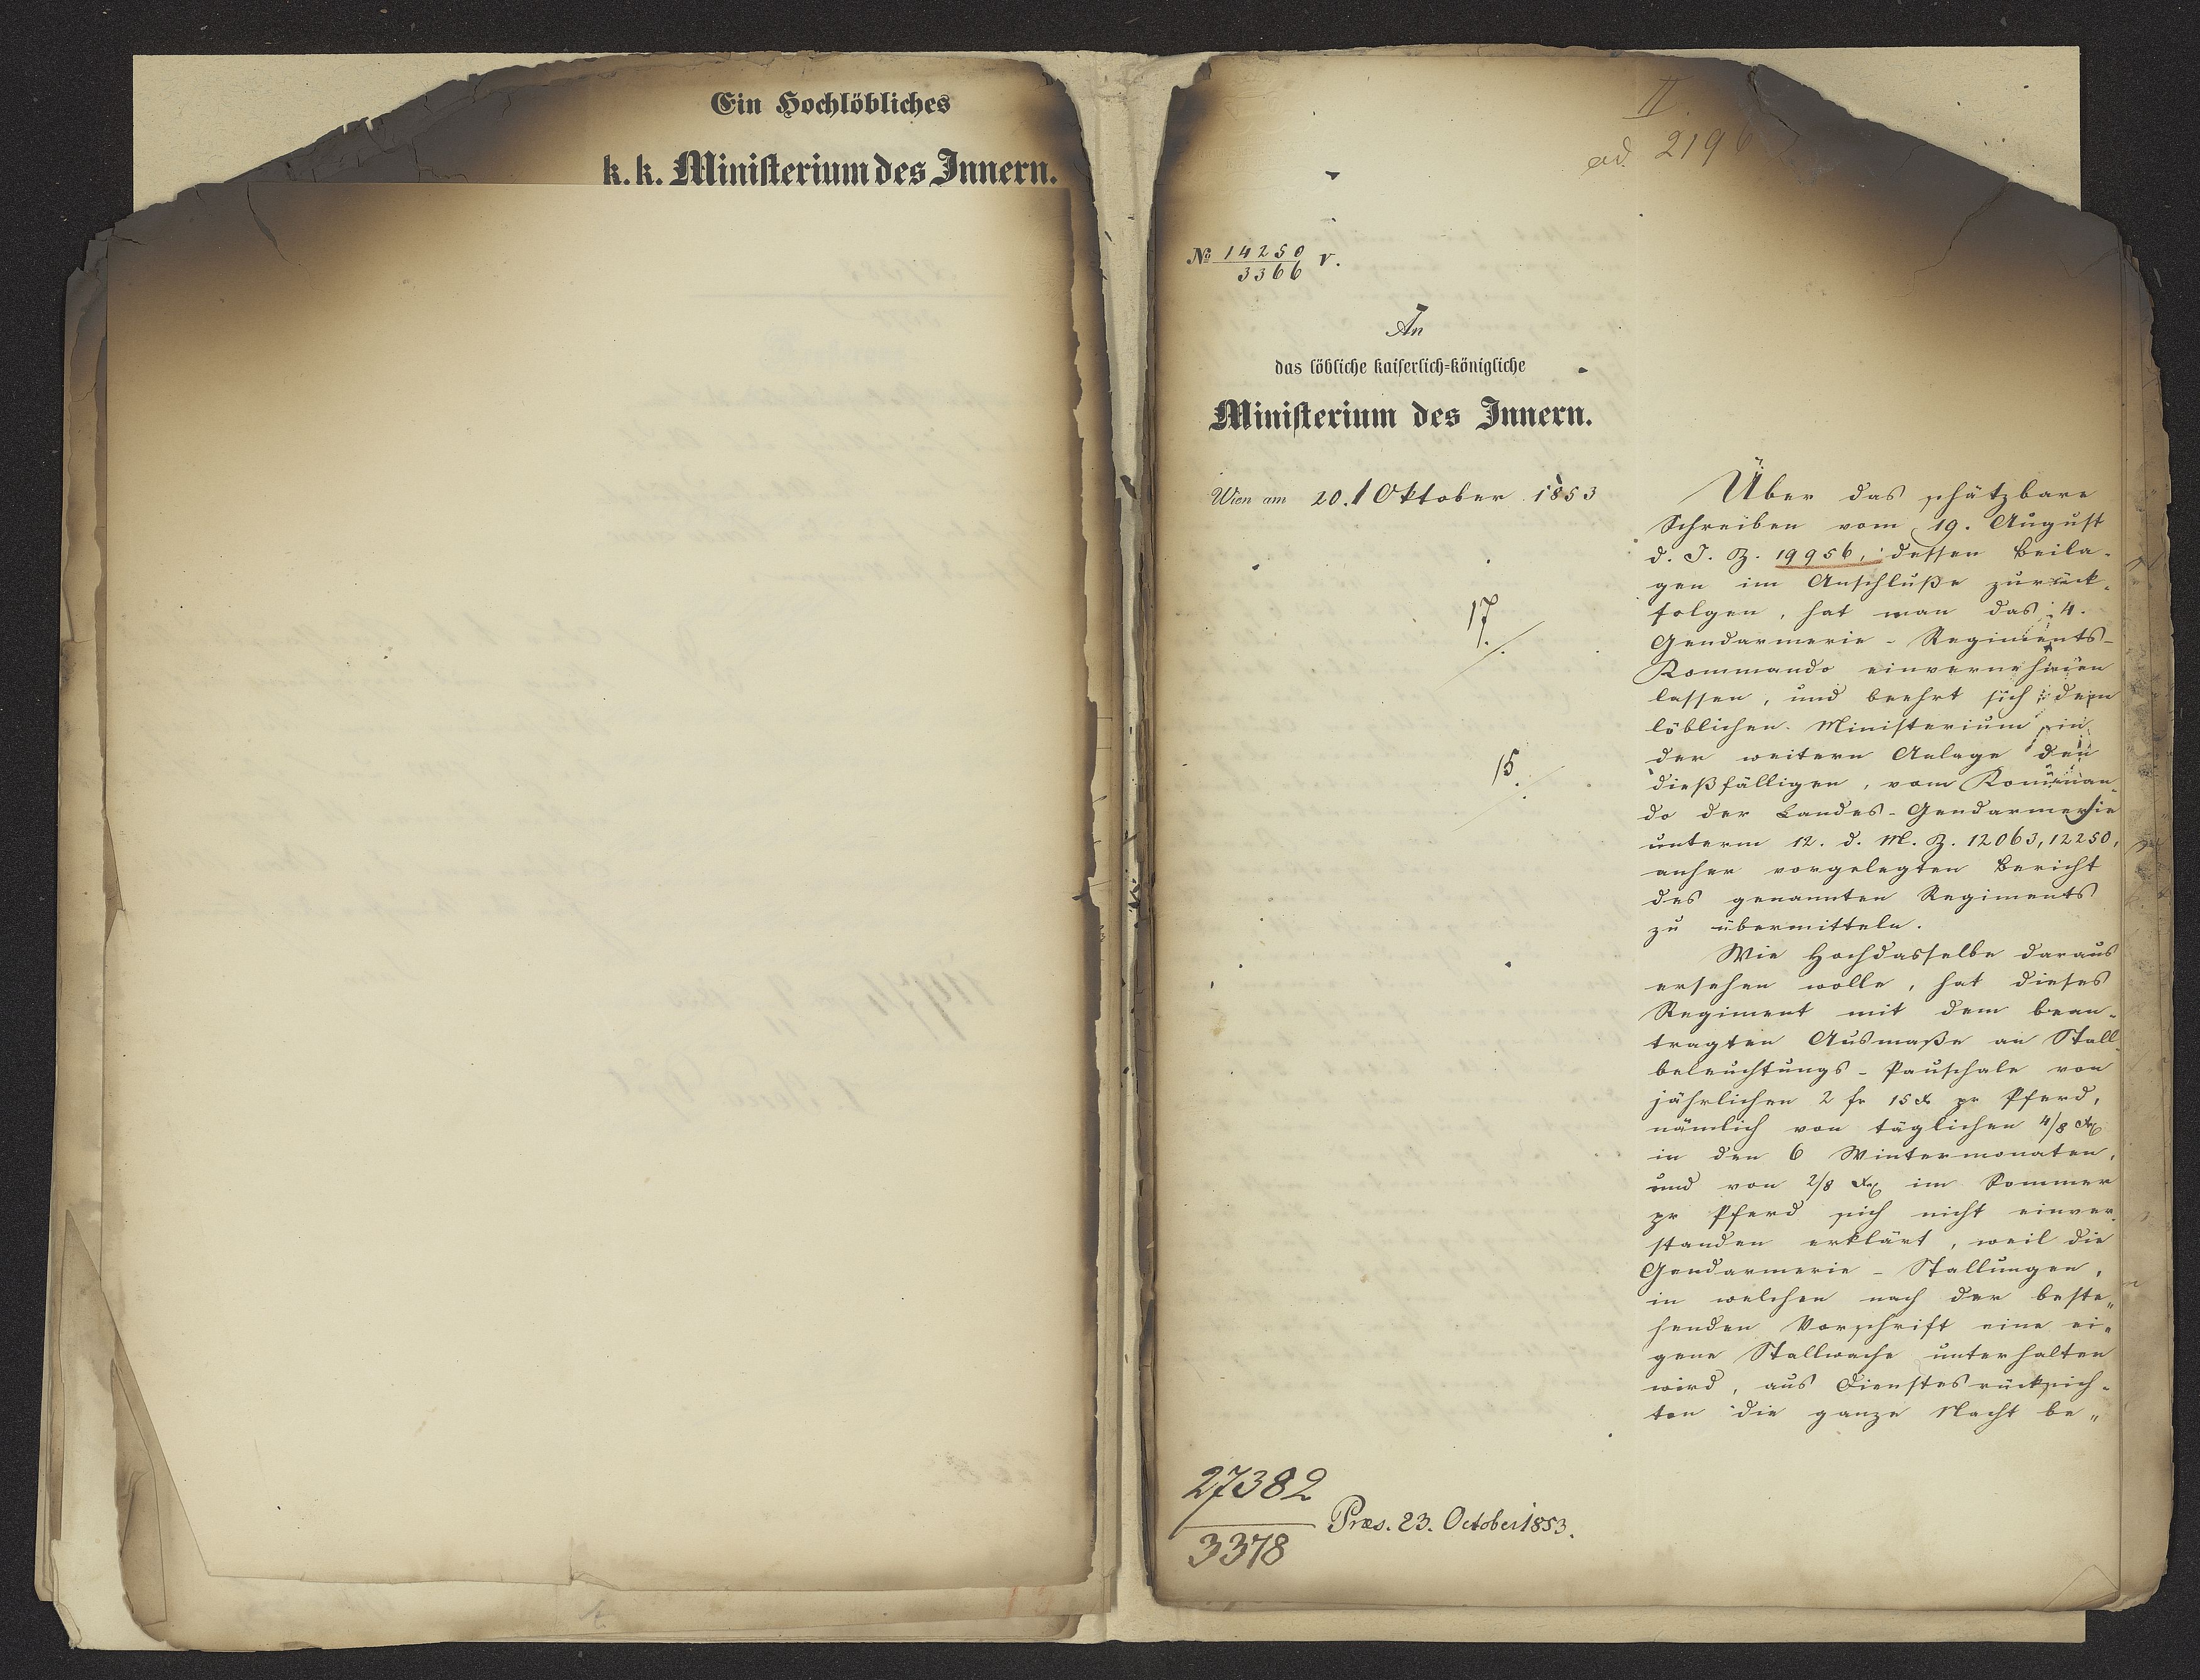 Ein Hochlöbliches
k. k. Ministerium des Innern.
II
ad. 2196
№ 14250
3366 V.
An
das löbliche kaiserlich=königliche
Ministerium des Innern.
Wien am 20. Oktober 1853
17
./.
15
./.
Über das schätzbare
Schreiben vom 19. August
d. J. Z. 19956, dessen Beila-
gen im Anschluße zurück-
folgen, hat man das 4.
Gendarmerie - Regiments-
Kommando einvernehmen
lassen, und beehrt sich dem
löblichen Ministerium in
der weitern Anlage den
dießfälligen, vom Komman-
do der Landes-Gendarmerie
unterm 12. d. M. Z. 12063, 12250,
anher vorgelegten Bericht
des genannten Regiments
zu übermitteln.
Wie Hochdasselbe daraus
ersehen wolle, hat dieses
Regiment mit dem bean-
tragten Ausmaße an Stall-
beleuchtungs - Pauschale von
jährlichen 2 fr 15 x pr Pferd,
nämlich von täglichen 4/8 xr
in den 6 Wintermonaten,
und von 2/8 xr im Sommer
pr Pferd sich nicht einver-
standen erklärt, weil die
Gendarmerie - Stallungen,
in welchen nach der beste„
henden Vorschrift eine ei„
gene Stallwache unterhalten
wird, aus Dienstesrücksich-
ten die ganze Nacht be„
27382
3378
Præs. 23. October 1853.